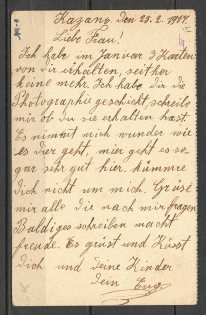 Kazang, Den 25. 2. 1917.
Liebe Frau!
Ich habe im Januar 3 Karten
von dir erhalten, seither
keine mehr. Ich habe dir die
Photographie geschickt, schreibe
mir ob du sie erhalten hast.
Es nimmt mich wunder wie
es dier geht, mier geht es so
gar sehr gut hier. kümmre
dich nicht um mich. Grüse
mir alle die nach mir fragen
Baldiges schreiben macht
freude. Es grüst und Küsst
dich und deine Kinder
dein Eug